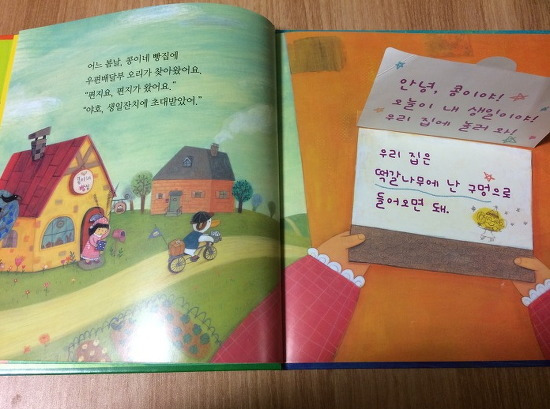 어느 봄날, 콩이네 빵집에
우편배달부 오리가 찾아왔어요.
"편지요, 편지가 왔어요."
"야호, 생일잔치에 초대받았어."
콩이네
빵집
안녕, 콩이야!
오늘이 내 생일이야!
우리 집에 놀러 와!
우리 집은
떡갈나무에 난 구멍으로
들어오면 돼.